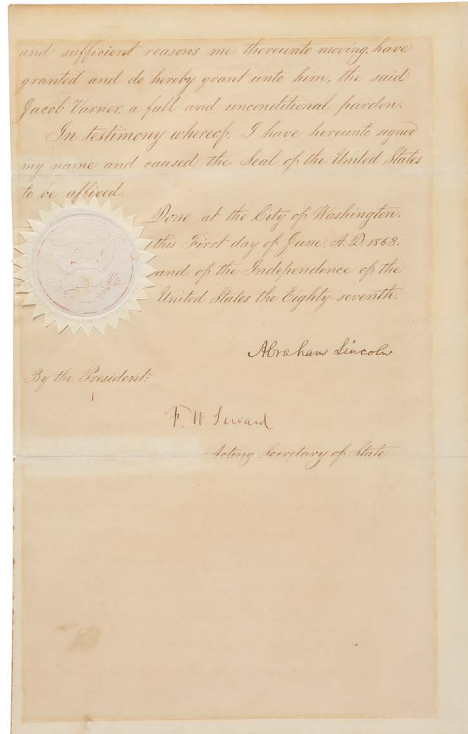 and sufficient reasons me thereunto moving, have
granted and do hereby grant unto him, the said
Jacob Varner, a full and unconditional pardon.
In testimony whereof, I have hereunto signed
my name and caused the Seal of the United States
to be affixed.
Done at the City of Washington.
this First day of June. A.D. 1863.
and of the Independence of the
United States the Eighty-seventh.
Abraham Lincoln
By the President:
F. W. Seward
Acting Secretary of State